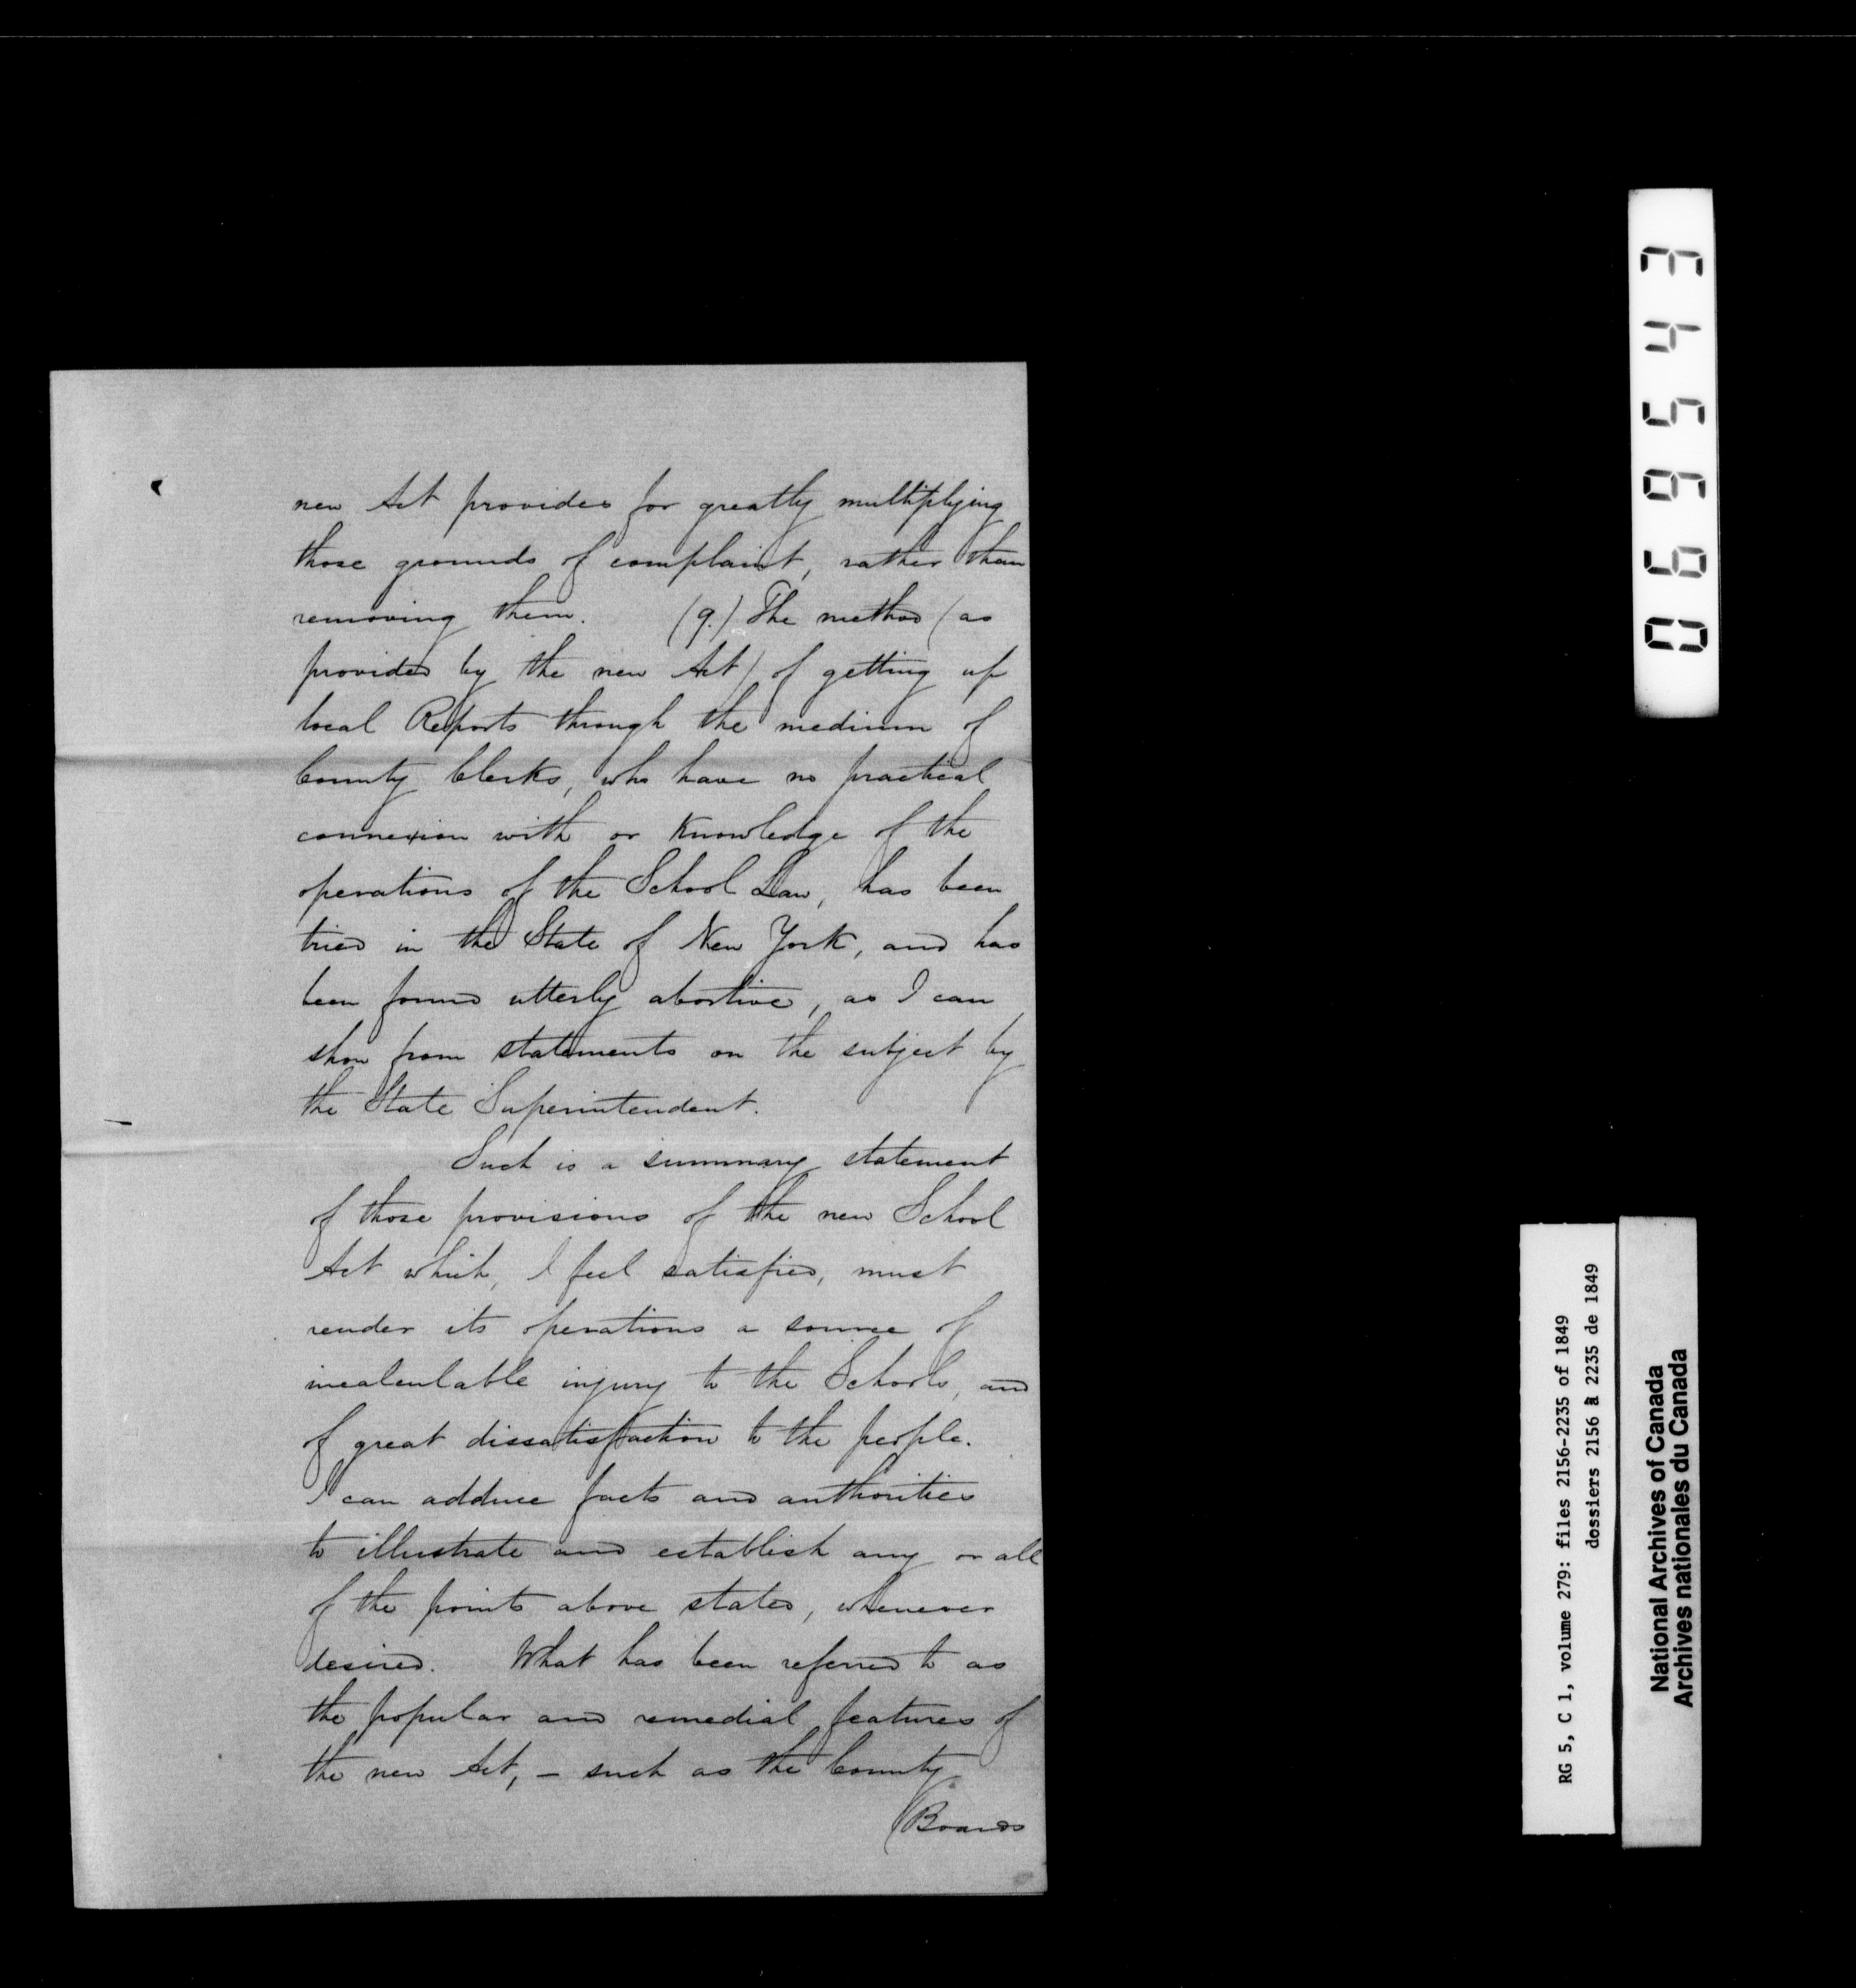 new Act provides for greatly multiplying
those grounds of complaint, rather than
removing them. (9.) The method (as
provided by the new Act) of getting up
local Reports through the medium of
County Clerks, who have no practical
connexion with or knowledge of the
operations of the School Law, has been
tried in the State of New York, and has
been found utterly abortive, as I can
show from statements on the subject by
the State Superintendent.
Such is a summary statement
of those provisions of the new School
Act which, I feel satisfied, must
render its operations a source of
incalculable injury to the Schools, and
of great dissatisfaction to the people.
I can adduce facts and authorities
to illustrate and establish any or all
of the points above stated, whenever
desired. What has been referred to as
the popular and remedial features of
the new Act, – such as the County
(Boards
069543
RG 5, C 1, volume 279: files 2156-2235 of 1849
dossiers 2156 à 2235 de 1849
National Archives of Canada
Archives nationales du Canada